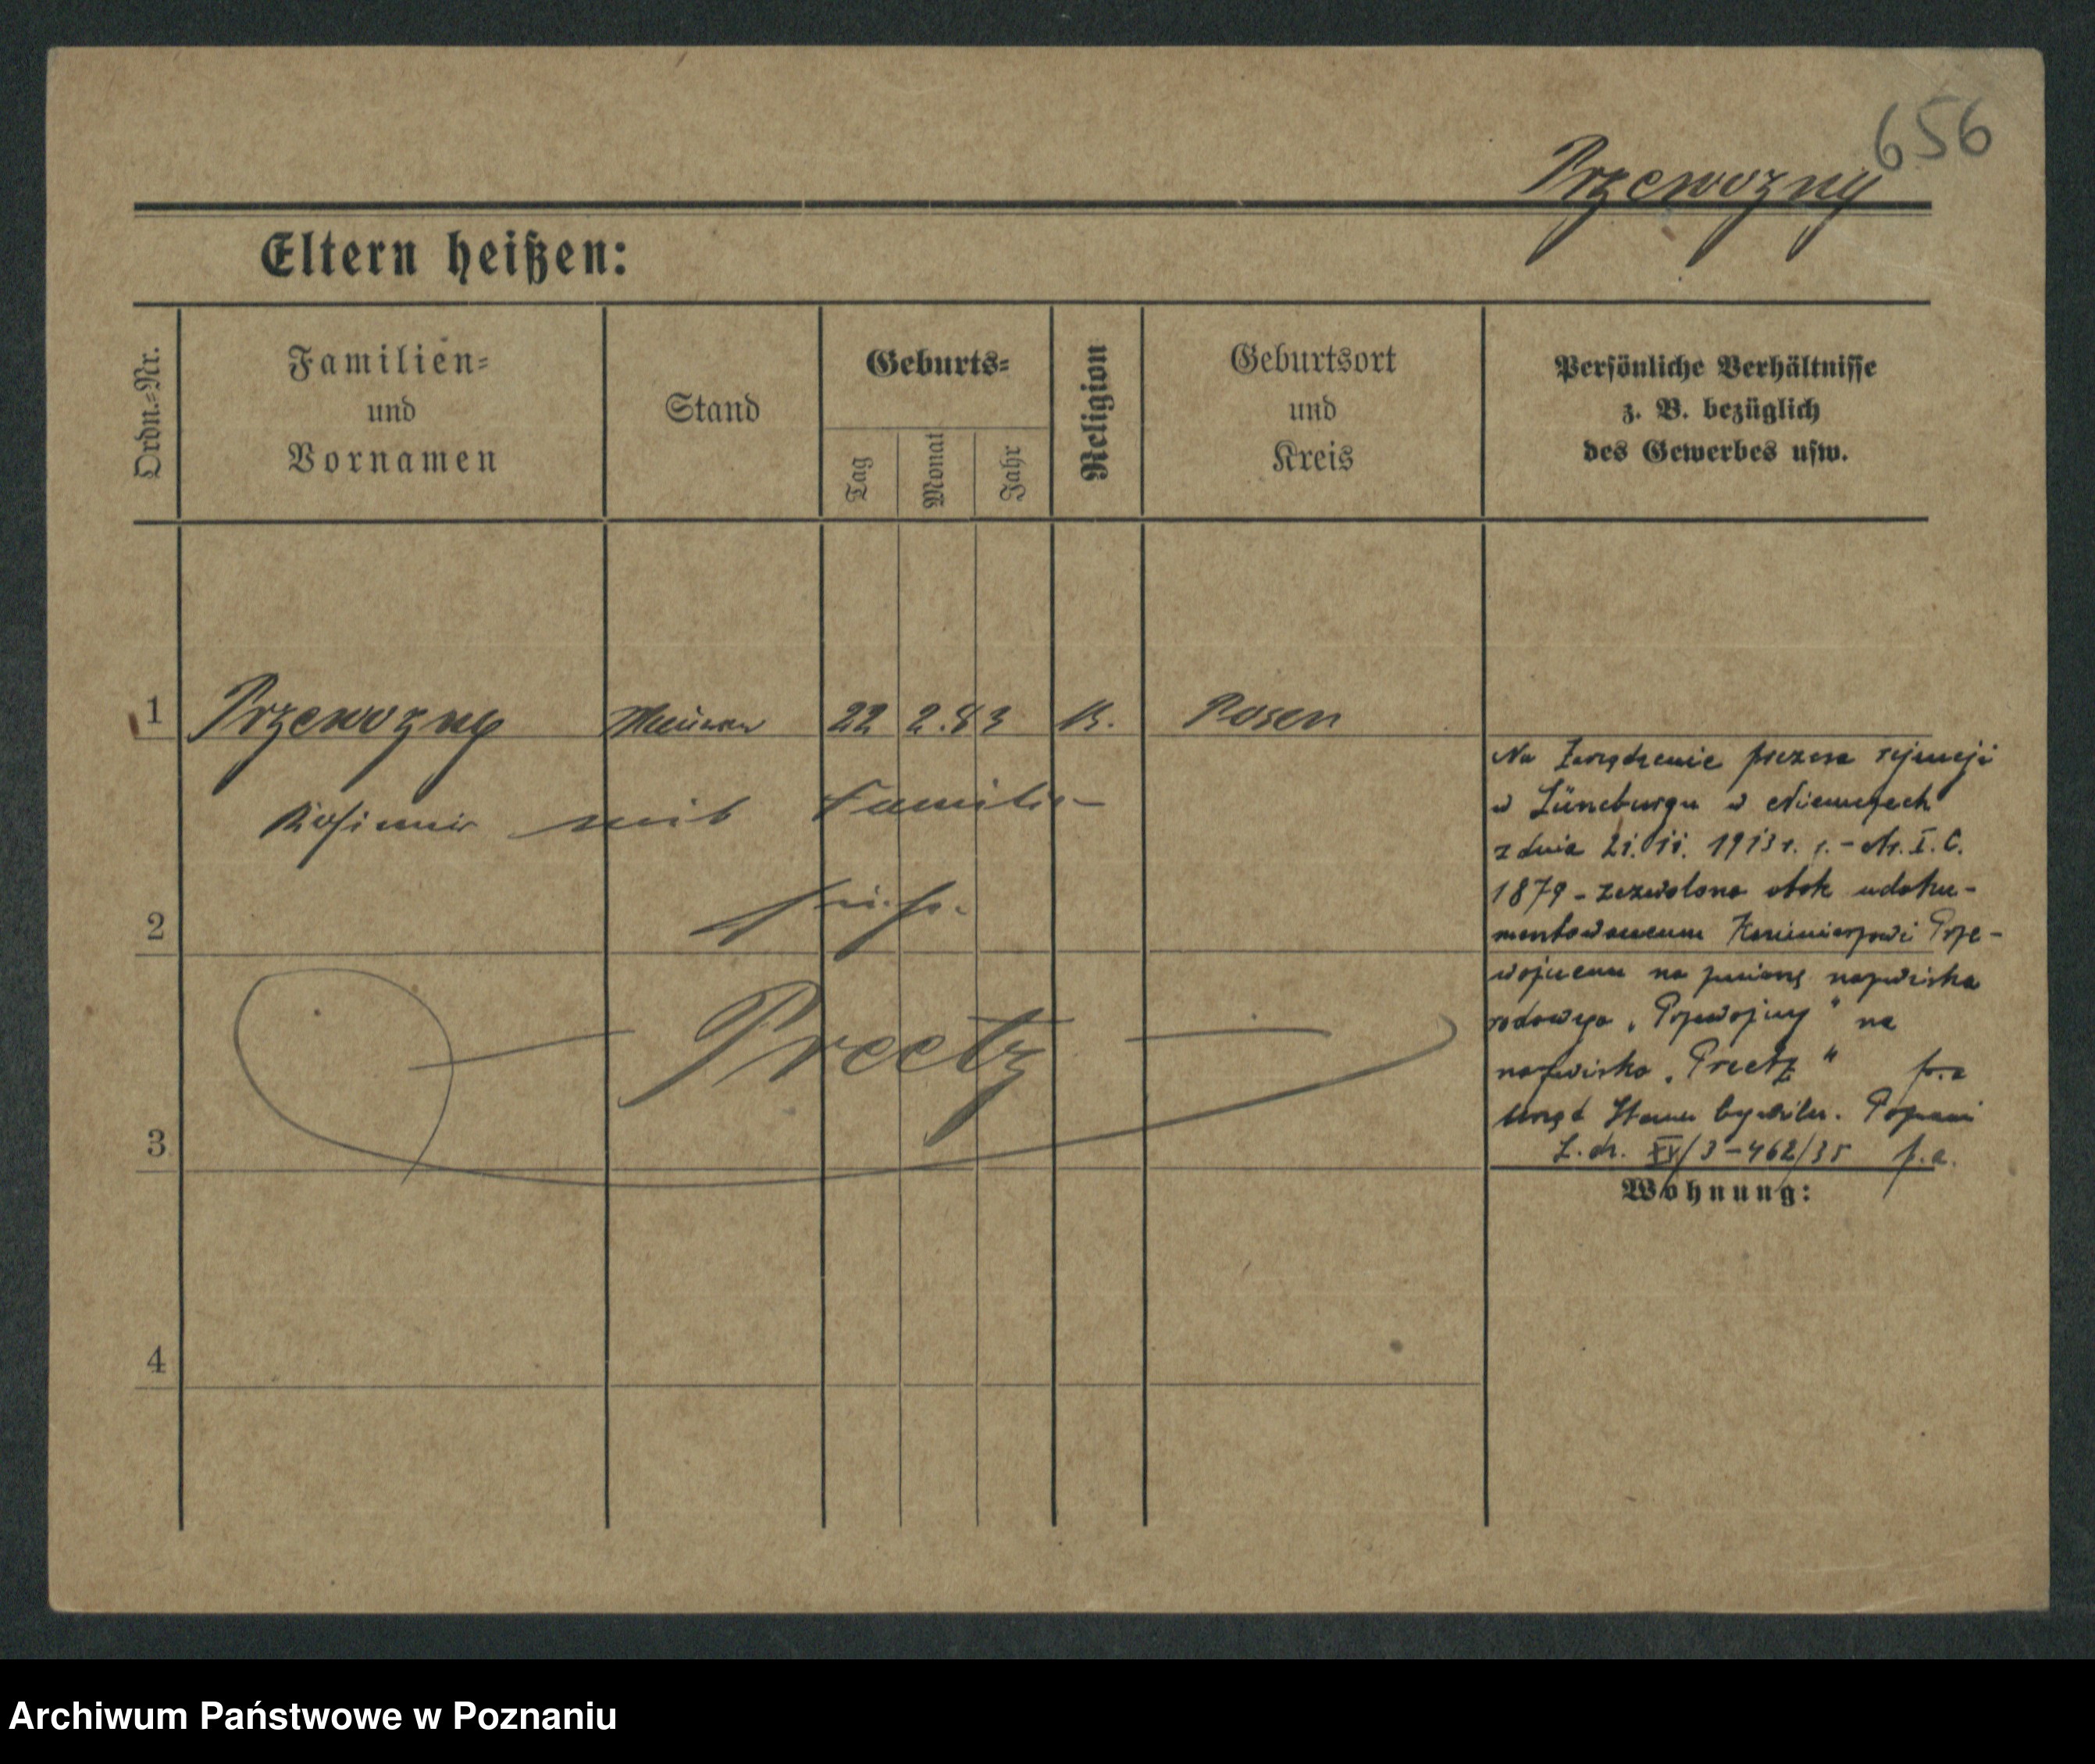 656
Przewozny
Eltern heißen:
Ordn.-Nr.
Familien-
und
Vornamen
Stand
Geburts-
Tag
Monat
Jahr
Religion
Geburtsort
und
Kreis
Persönliche Verhältnisse
z. B. bezüglich
des Gewerbes usw.
1 Przewozny Maurer 22 2. 83 K. Posen
Kasimir mit Familie
siehe
Preetz
2
3
4
Na Zarządzenie prezesa rejencji
w Lüneburgu w Niemczech
z dnia 21. 11. 1913 r. - Nr. I. C.
1879 - zezwolono obok udoku-
mentowanemu Kazimierzowi Prze-
woźnemu na zmianę nazwiska
rodowego „Przewoźny" na
nazwisko „Preetz"
Urząd Stanu Cywiln. Poznań
L. dz. XV/3-462/35
Wohnung:
Archiwum Państwowe w Poznaniu